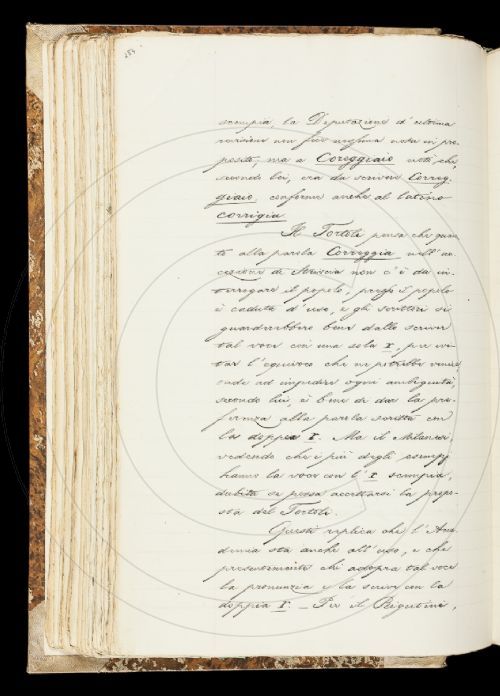 184
scempia, la Deputazione d'allora
rariare non fece nessuna nota in pro-
posito, ma a Coreggiaio notò che,
secondo lei, era da scrivere Correg-
giaio, conforme anche al latino
corrigia.
Il Tortoli pensa che quan-
to alla parola Correggia nell'ac-
cezione di Striscia non c'è da in-
terrogare il popolo, presso il popolo
è caduta d'uso, e gli scrittori si
guarderebbero bene dallo scriver
tal voce con una sola r, per evi-
tar l'equivoco che ne potrebbe venire,
onde ad impedire ogni ambiguità,
secondo lui, è bene di dar la pre-
ferenza alla parola scritta con
la doppia r. Ma il Milanesi,
vedendo che i più degli esempj
hanno la voce con l'r scempia,
dubita se possa accettarsi la propo-
sta del Tortoli.
Questi replica che l'Acca-
demia sta anche all'uso, e che
presentemente chi adopra tal voce
la pronunzia e la scrive con la
doppia r. — Per il Rigutini,